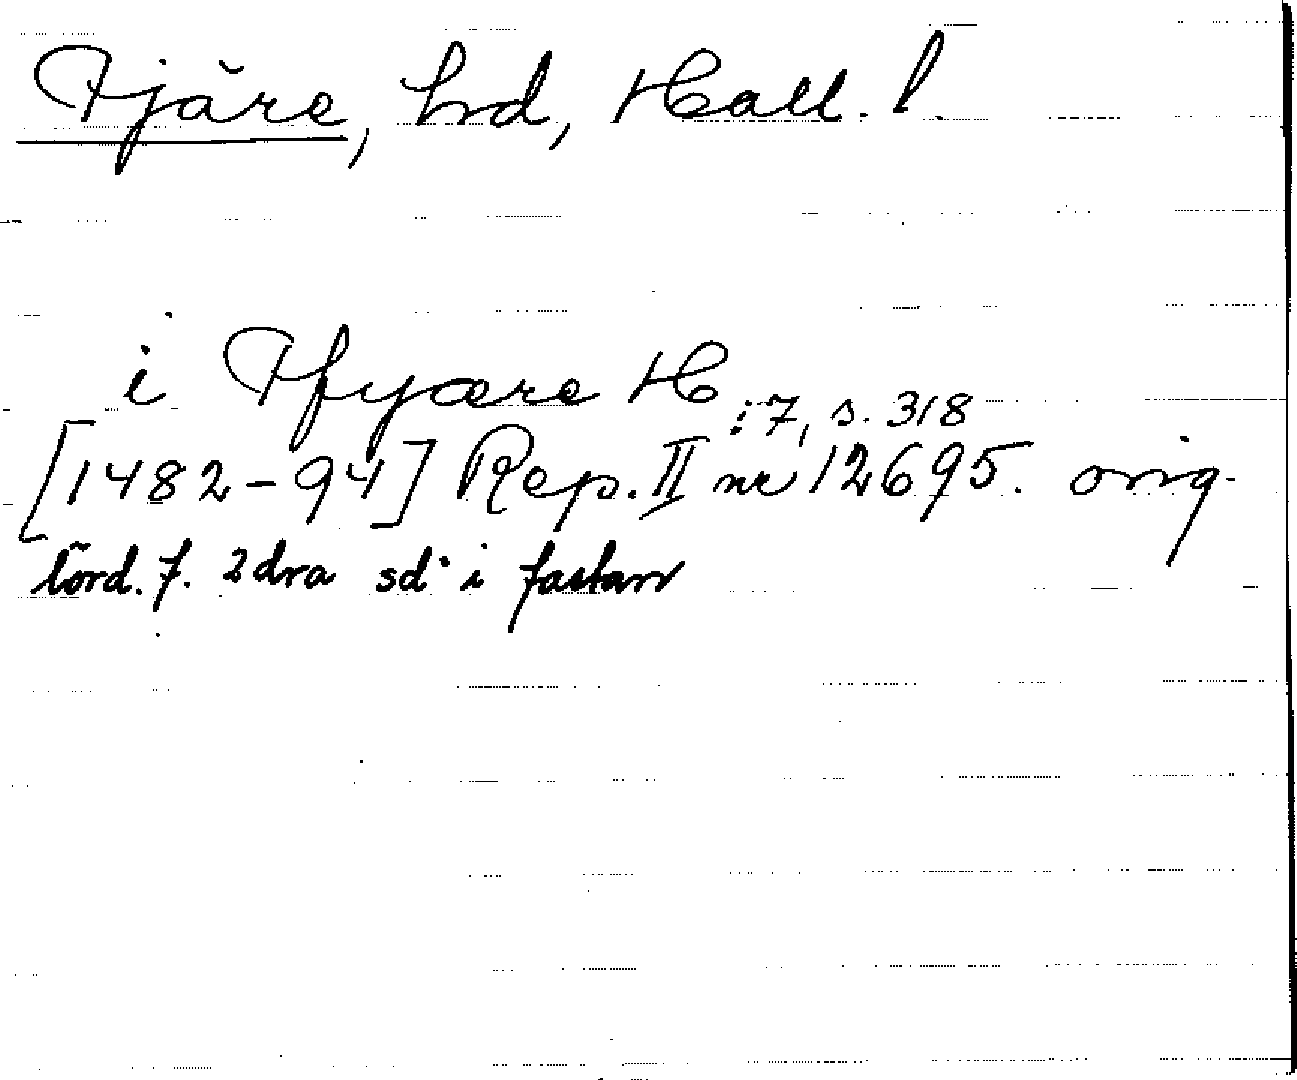 Fjäre, hd, Hall. l
i Ffyære H :7, s. 318
[1482-94] Rep. II nr 12695. orig.
lörd. f. 2dra sd. i fastan